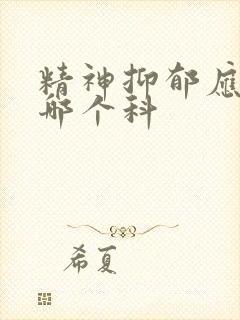 精神抑郁應
哪个科
希夏